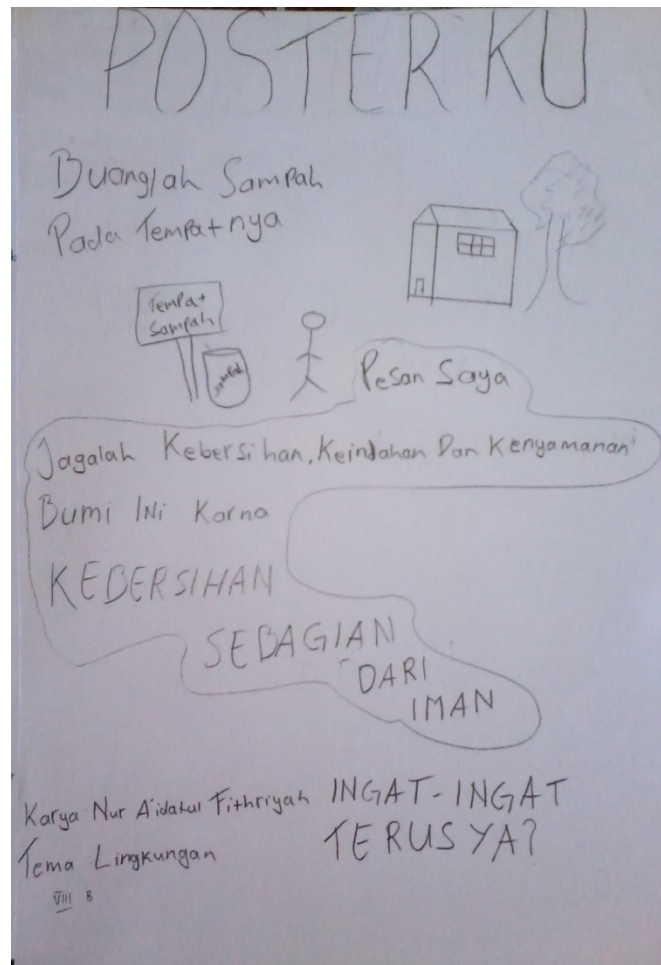 POSTER KU
Buanglah Sampah
Pada Tempatnya
Tempat
Sampah
Sampah
Pesan Saya
Jagalah Kebersihan, Keindahan Dan Kenyamanan
Bumi Ini Karna
KEBERSIHAN
SEBAGIAN
DARI
IMAN
Karya Nur A'idatul Fithriyah
Tema Lingkungan
VIII B
INGAT-INGAT
TERUS YA?